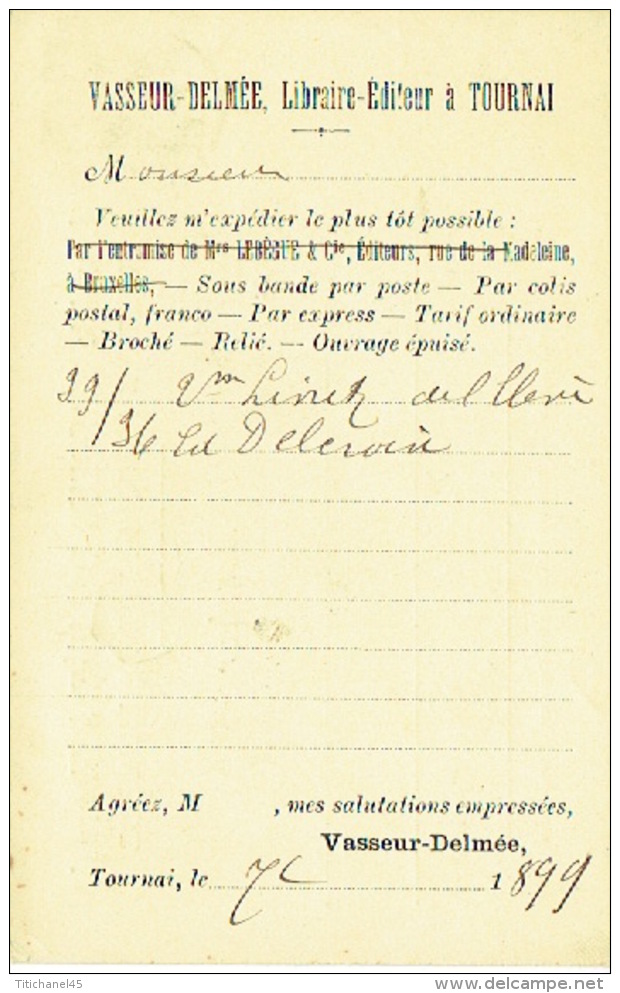 VASSEUR-DELMÉE, Libraire-Éditeur à TOURNAI
Monsieur
Veuillez m'expédier le plus tôt possible :
Par l'entremise de Mrs LEBÈGUE & Cie, Éditeurs, rue de la Madeleine,
à Bruxelles, — Sous bande par poste — Par colis
postal, franco — Par express — Tarif ordinaire
— Broché — Relié. — Ouvrage épuisé.
Agréez, M , mes salutations empressées,
Vasseur-Delmée,
Tournai, le 1899
Titichanel45
delcampe.net